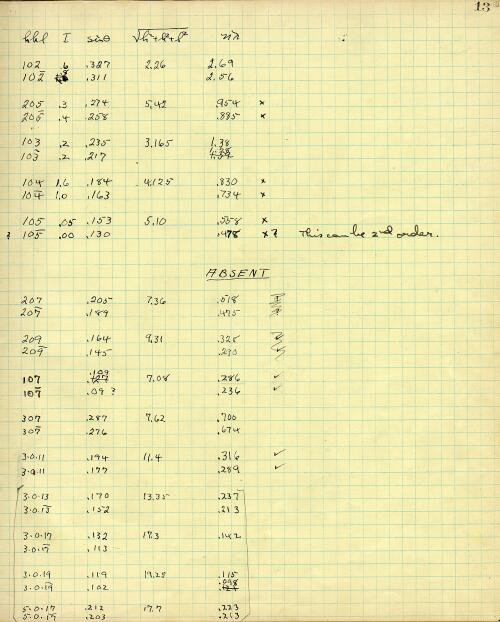 13
hkl I sinθ √h²+k²+l² nλ
102 .6 .327 2.26 2.69
102̄ .311 2.56
205 .3 .274 5.42 .954 x
205̄ .4 .258 .885 x
103 .2 .235 3.165 1.38
103̄ .2 .217
104 1.6 .184 4.125 .830 x
104̄ 1.0 .163 .734 x
105 .05 .153 5.10 .558 x
? 105̄ .00 .130 .478 x ? This can be 2nd order.
ABSENT
207 .205 7.36 .518
207̄ .189 .475
209 .164 9.31 .325
209̄ .145 .290
107 .109 7.08 .286 ✓
107̄ .09 ? .236 ✓
307 .287 7.62 .700
307̄ .276 .674
3.0.11 .194 11.4 .316 ✓
3.0.11 .177 .289 ✓
3.0.13 .170 13.35 .237
3.0.13̄ .152 .213
3.0.17 .132 17.3 .142
3.0.17̄ .113
3.0.19 .119 19.25 .115
3.0.19̄ .102 .098
5.0.17 .212 17.7 .223
5.0.19 .203 .213